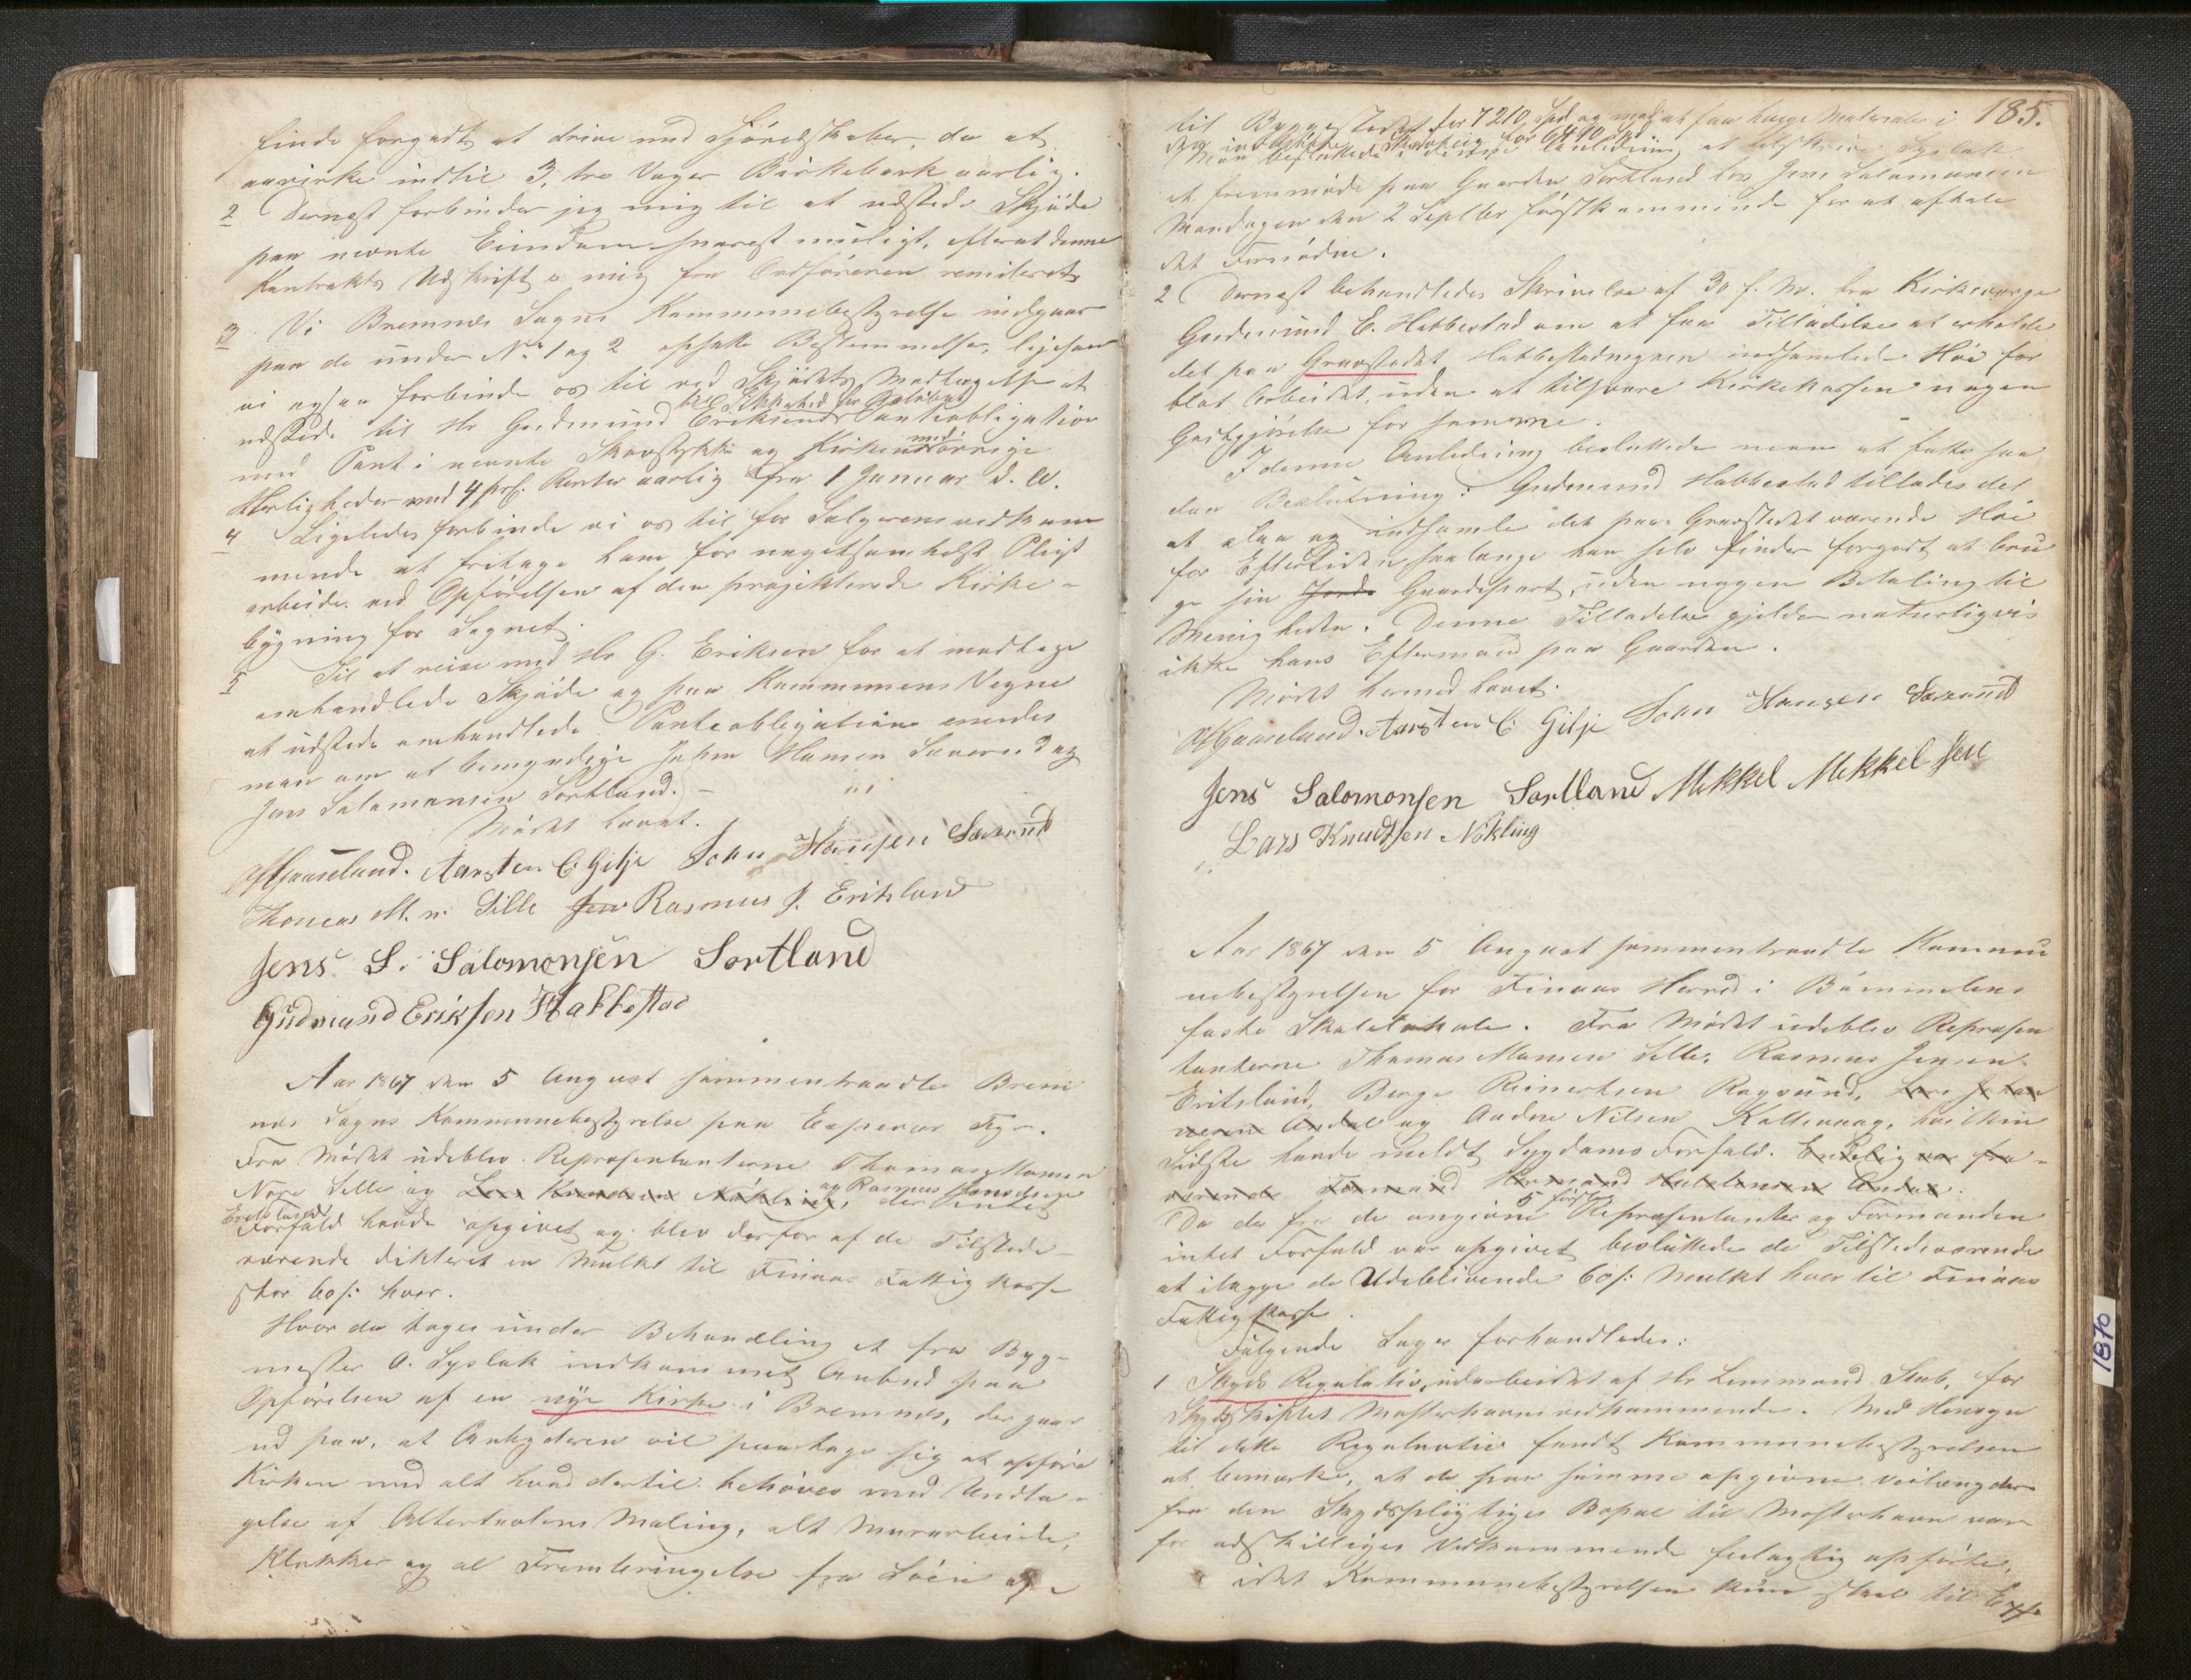 finde forgodt at drive med Fjöredskaber, da at
avirke indtil 3, tre Vager Birkebark aarlig.
2 Dernæst forbinder jeg mig til at udstede Skjöde
paa nevnte Eiendom snarest muligt, efterat denne
Kontrakts Udskrift er mig fra Ordföreren remiteret
3 Vi Bremnes Sogns Kommunebestyrelse indgaar
paa de under No 1 og 2 opsatte Bestemmelser, ligesom
vi ogsaa forbinde os til ved Skjödets Modtagelse at
til Sikkerhed for Belöbet
udstede til Hr Gudmund Eriksen Panteobligation
med Pant i nevnte Skovstykke og Kirkens övrige
Herligheder med 4 prC. Renter aarlig fra 1 Januar d. A.
4 Ligeledes forbinde vi os til for Selgerens vedkom
mende at fritage ham for nogetsomhelst Pligt
arbeide ved Opförelsen af den projekterede Kirke-
bygning for Sognet.
5 Til at reise med Hr G. Eriksen for at modtage
omhandlede Skjöde og paa Kommunens Vegne
at udstede omhandlede Panteobligation enedes
man om at bemyndige John Hansen Særvold og
Jens Salamonsen Sortland. –
Mödet hævet.
Aarsten C. Gilje John Hansen
Thomas M. n. Lille Jen Rasmus J. Eritsland
Jens S. Salomonsen Sortland
Gudmund Eriksen Habbestad
Aar 1867 den 5 August sammentraadte Brem
nes Sogns Kommunebestyrelse paa Espevær Fyr.
Fra Mödet udeblev Repræsentanterne Thomas Monsen
og Rasmus Jensen
Nore Lille og Lars Knudsen Nökling, der intet
Eritsland
Forfald havde opgivet og blev derfor af de Tilstede-
værende dikteret en Mulkt til Finaas Fattigkasse
stor 60 s: hver.
Hvorda toges under Behandling et fra Byg-
mester A. Syslak indkommet Anbud paa
Opförelsen af en nye Kirke i Bremnes, der gaar
ud paa, at Anbyderen vil paatage sig at opföre
Kirken med alt hvad dertil behöves med Undta-
gelse af Altertavlens Maling, alt Murarbeide,
Klokker og al Frembringelse fra Söen og
185.
til Byggestedet for 7210 Spd og mod at faa hugge Materialer i
den indkjöbte Skovteig for 6490 Spd
Man besluttede i denne Anledning at tilskrive Syslak
at fremmöde paa Gaarden Sortland hos Jens Salamonsen
Mandagen den 2 Septbr förstkommende for at aftale
det Fornödne.
2 Dernæst behandledes Skrivelse af 30 f. M. fra Kirkeværge
Gudmund E. Habbestad om at faa Tilladelse at erholde
det paa Gravstedet Habbestadvegnen indsamlede Höe for
blot Arbeidet, uden at tilsvare Kirkekassen nogen
Godtgjörelse for samme.
I denne Anledning besluttede man at fatte saa
dan Beslutning: Gudmund Habbestad tillades det
at slaa og indsamle det paa Gravstedet værende Höe
for Eftertiden, saalænge han selv finder forgodt at bru
ge sin Jords Gaardspart, uden nogen Betaling til
Menigheden. Denne Tilladelse gjelder naturligvis
ikke hans Eftermand paa Gaarden.
Mödet hermed hævet.
Aarsten C. Gilje John Hansen
Jens Salomonsen Sortland Mikkel Mikkelsen
Lars Knudsen Nökling
Aar 1867 den 5 August sammentraadte Kommu
nebestyrelsen for Finaas Herred i Bömmelens
faste Skolelokale. Fra Mödet udeblev Repræsen
tanterne Thomas Monsen Lille, Rasmus Jensen
Eritsland, Berge Reinertsen Rogsund,
og Andrew Nilsen Kallevaag, hvilken
Sidste havde meldt Sygdoms Forfald. Endelig var fra-
værende Formand Hermand
Da der fra de angivne 5 förste Repræsentanter og Formanden
intet Forfald var opgivet besluttede de Tilstedeværende
at ilægge de Udeblivende 60 s: Mulkt hver til Finaas
Fattigkasse.
Fölgende Sager forhandledes:
1 Skyds Regulativ, udarbeidet af Hr Lensmand Stub, for
Skydsskiftet Mosterhavn vedkommende. Med Hensyn
til dette Regulativ fandt Kommunebestyrelsen
at bemærke, at de paa samme opgivne Veilængder
fra den Skydspligtiges Bopæl til Mosterhavn var
for adskilliges Vedkommende feilagtig opförte,
idet Kommunebestyrelsen kun skal til Ex
1870